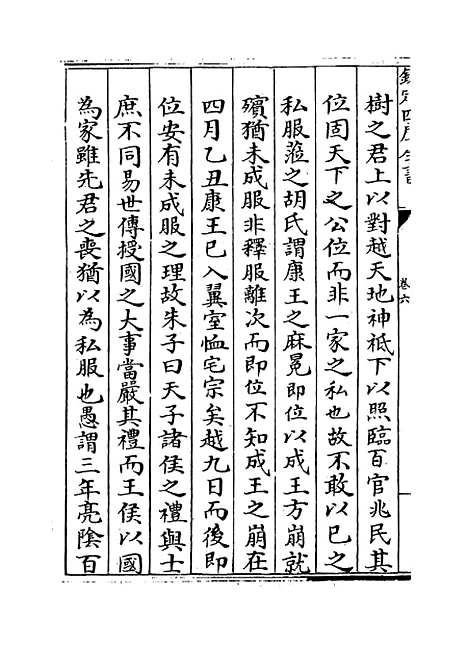 欽定四庫全書
卷六
樹之君上以對越天地神祇下以照臨百官兆民其
位固天下之公位而非一家之私也故不敢以已之
私服蒞之胡氏謂康王之麻冕即位以成王方崩就
殯猶未成服非釋服離次而即位不知成王之崩在
四月乙丑康王已入翼室恤宅宗矣越九日而後即
位安有未成服之理故朱子曰天子諸侯之禮與士
庶不同易世傳授國之大事當嚴其禮而王侯以國
為家雖先君之喪猶以為私服也愚謂三年亮陰百